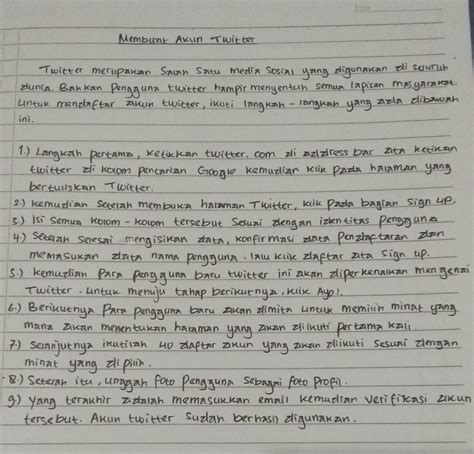 Membuat Akun Twitter
Twitter merupakan Salah Satu media Sosial yang digunakan di seluruh
dunia. Bahkan Pengguna twitter hampir menyentuh semua lapisan masyarakat.
Untuk mendaftar akun twitter, ikuti langkah - langkah yang ada dibawah
ini.
1.) Langkah pertama, ketikkan twitter. com di address bar ata ketikan
twitter di kolom pencarian Google kemudian klik pada halaman yang
bertuliskan Twitter.
2.) kemudian Setelah membuka halaman Twitter, klik Pada bagian sign up.
3.) Isi Semua kolom - kolom tersebut Sesuai dengan identitas pengguna
4.) Setelah Selesai mengisikan data, konfirmasi data Pendaftaran dan
memasukan data nama pengguna. lalu klik daftar ata Sign up.
5.) kemudian Para pengguna baru twitter ini akan diperkenalkan mengenai
Twitter. Untuk menuju tahap berikutnya, klik Ayo!.
6.) Berikutnya Para pengguna baru akan diminta untuk memilih minat yang
mana akan menentukan halaman yang akan diikuti pertama kali
7.) Selanjutnya ikutilah 40 daftar akun yang akan diikuti Sesuai dengan
minat yang dipilih.
8.) Setelah itu, unggah foto Pengguna Sebagai foto profil.
9) Yang terakhir adalah memasukkan email kemudian verifikasi akun
tersebut. Akun twitter Sudah berhasil digunakan.